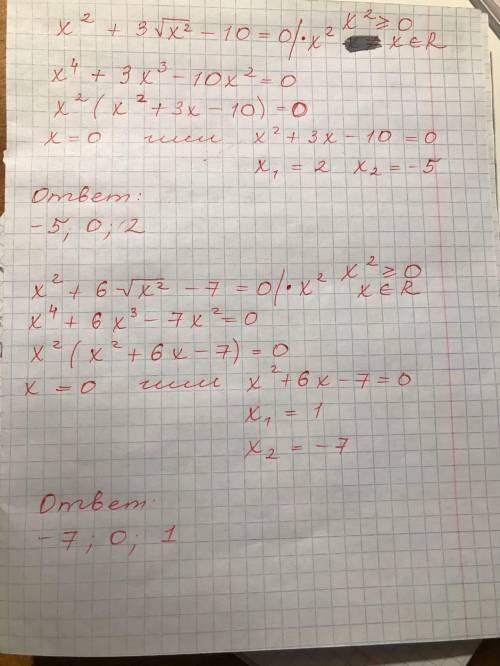 x² + 3√x² - 10 = 0 | · x² x² ≥ 0
x ∈ R
x⁴ + 3x³ - 10x² = 0
x² (x² + 3x - 10) = 0
x = 0 или x² + 3x - 10 = 0
x₁ = 2 x₂ = -5
Ответ:
-5; 0; 2
x² + 6√x² - 7 = 0 | · x² x² ≥ 0
x ∈ R
x⁴ + 6x³ - 7x² = 0
x² (x² + 6x - 7) = 0
x = 0 или x² + 6x - 7 = 0
x₁ = 1
x₂ = -7
Ответ:
-7; 0; 1